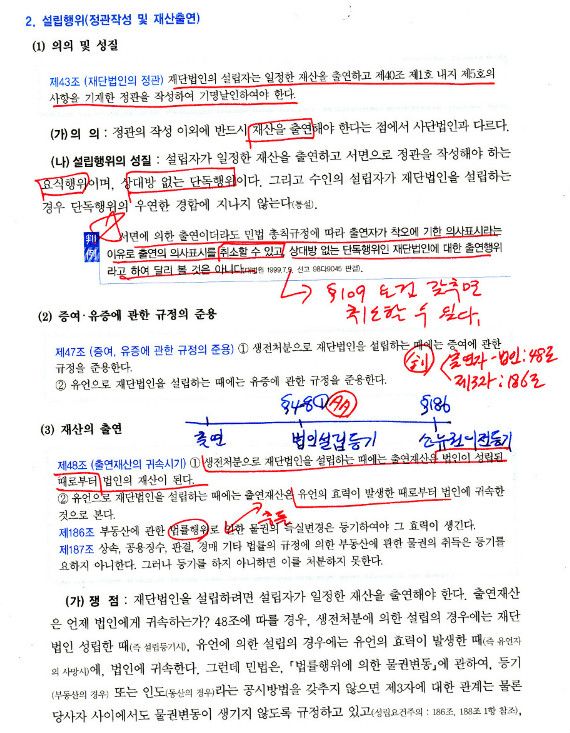 2. 설립행위(정관작성 및 재산출연)
(1) 의의 및 성질
제43조 (재단법인의 정관) 재단법인의 설립자는 일정한 재산을 출연하고 제40조 제1호 내지 제5호의
사항을 기재한 정관을 작성하여 기명날인하여야 한다.
(가) 의 의 : 정관의 작성 이외에 반드시 재산을 출연해야 한다는 점에서 사단법인과 다르다.
(나) 설립행위의 성질 : 설립자가 일정한 재산을 출연하고 서면으로 정관을 작성해야 하는
요식행위이며, 상대방 없는 단독행위이다. 그리고 수인의 설립자가 재단법인을 설립하는
경우 단독행위의 우연한 경합에 지나지 않는다(통설).
판례
서면에 의한 출연이더라도 민법 총칙규정에 따라 출연자가 착오에 기한 의사표시라는
이유로 출연의 의사표시를 취소할 수 있고, 상대방 없는 단독행위인 재단법인에 대한 출연행위
라고 하여 달리 볼 것은 아니다(대법원 1999.7.9. 선고 98다9045 판결).
§109 요건 갖추면
취소할 수 있다.
(2) 증여·유증에 관한 규정의 준용
제47조 (증여, 유증에 관한 규정의 준용) ① 생전처분으로 재단법인을 설립하는 때에는 증여에 관한
규정을 준용한다.
② 유언으로 재단법인을 설립하는 때에는 유증에 관한 규정을 준용한다.
출연자-법인:48조
제3자:186조
§48① AA §186
(3) 재산의 출연
출연 법인설립등기 소유권이전등기
제48조 (출연재산의 귀속시기) ① 생전처분으로 재단법인을 설립하는 때에는 출연재산은 법인이 성립된
때로부터 법인의 재산이 된다.
② 유언으로 재단법인을 설립하는 때에는 출연재산은 유언의 효력이 발생한 때로부터 법인에 귀속한
것으로 본다.
취득
제186조 부동산에 관한 법률행위로 인한 물권의 득실변경은 등기하여야 그 효력이 생긴다.
제187조 상속, 공용징수, 판결, 경매 기타 법률의 규정에 의한 부동산에 관한 물권의 취득은 등기를
요하지 아니한다. 그러나 등기를 하지 아니하면 이를 처분하지 못한다.
(가) 쟁 점 : 재단법인을 설립하려면 설립자가 일정한 재산을 출연해야 한다. 출연재산
은 언제 법인에게 귀속하는가? 48조에 따를 경우, 생전처분에 의한 설립의 경우에는 재단
법인 성립한 때(즉 설립등기시), 유언에 의한 설립의 경우에는 유언의 효력이 발생한 때(즉 유언자
의 사망시)에, 법인에 귀속한다. 그런데 민법은, 「법률행위에 의한 물권변동」에 관하여, 등기
(부동산의 경우) 또는 인도(동산의 경우)라는 공시방법을 갖추지 않으면 제3자에 대한 관계는 물론
당사자 사이에서도 물권변동이 생기지 않도록 규정하고 있고(성립요건주의 : 186조, 188조 1항 참조),